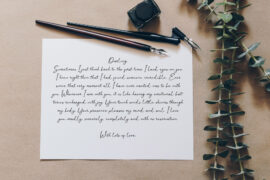 Darling,
Sometimes I just think back to the first time I laid eyes on you.
I knew right then that I had found someone incredible. Ever
since that very moment all I have ever wanted, was to be with
you. Whenever I am with you, it is like having my emotional, bat-
teries recharged with joy. Your touch sends a little shiver through
my body. Your presence pleases my mind and soul. I love
you deeply, sincerely, completely and with no reservation.
With lots of love.